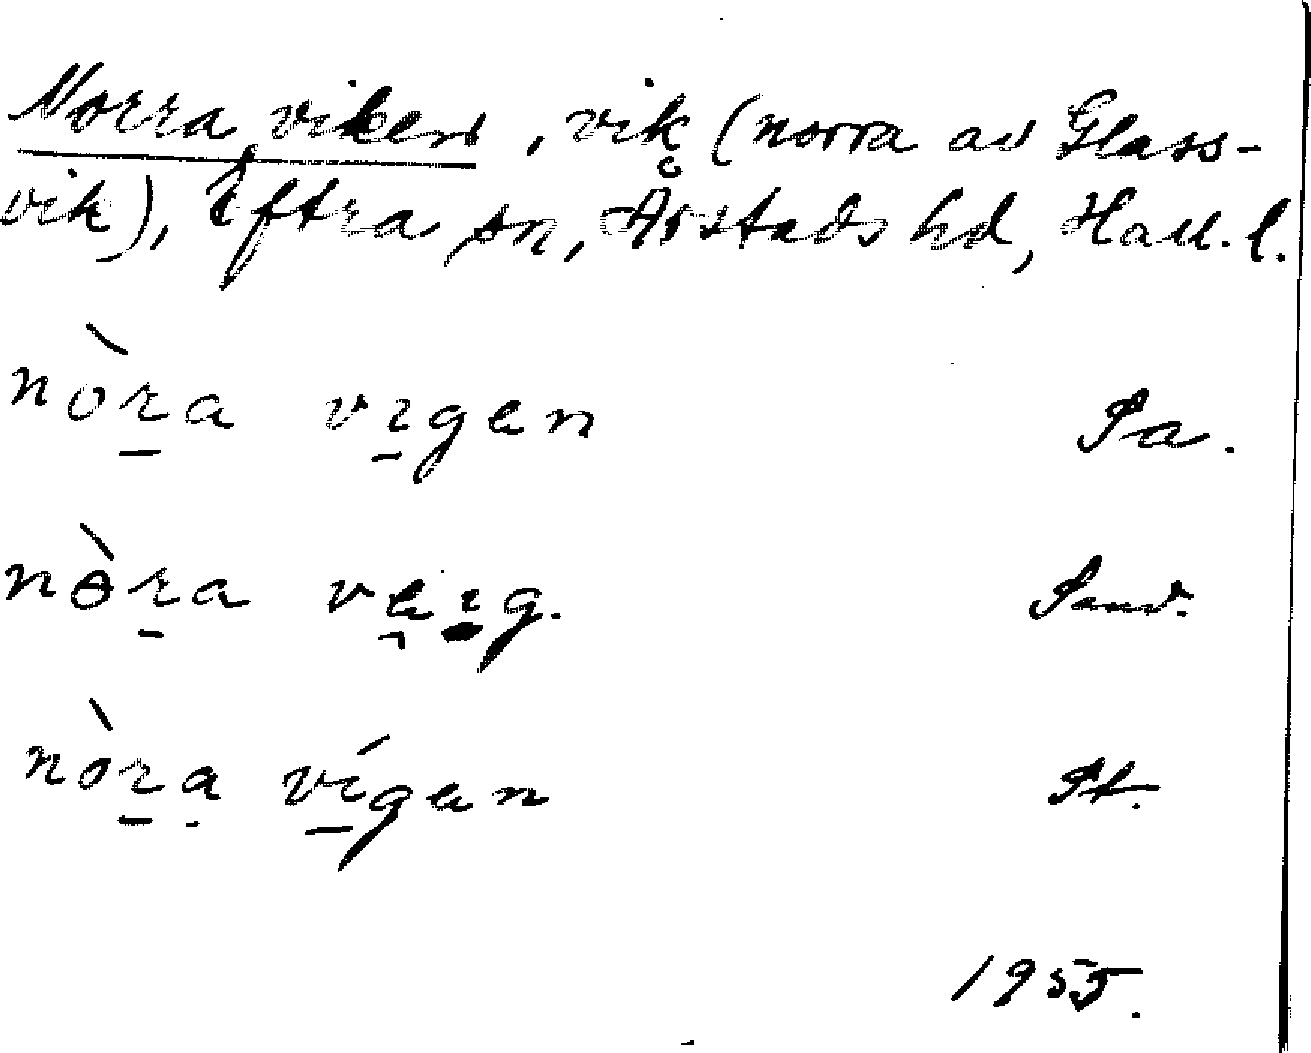 Norra viken, vik (norra av Glass-
vik), Eftra sn, Årstads hd, Hall. l.
nòra vigen Pa.
nɵ̀ra veig.
nòra vígen Pt.
1955.